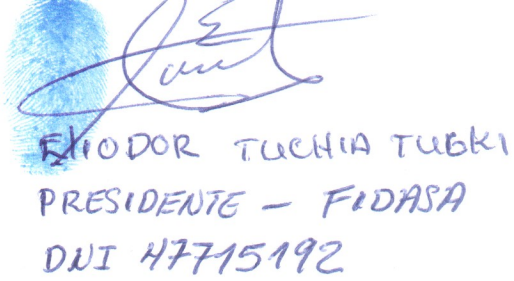 ELIODOR TUCHIA TUGKI
PRESIDENTE – FIDASA
DNI 47715192